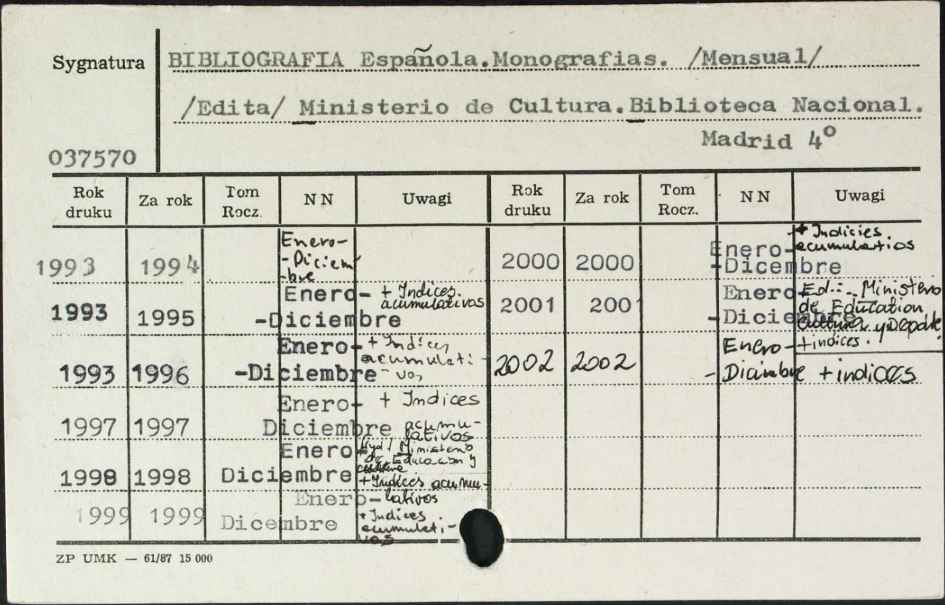 Sygnatura
BIBLIOGRAFIA Española.Monografias. /Mensual/
/Edita/ Ministerio de Cultura.Biblioteca Nacional.
Madrid 4º
037570
Rok druku Za rok Tom Rocz. NN Uwagi Rok druku Za rok Tom Rocz. NN Uwagi
1993 1994 Enero-
-Diciem
-bre
1993 1995 Enero- + Indices.
acumulativos
-Diciembre
1993 1996 Enero- + Indices
acumulati-
-Diciembre- vos
1997 1997 Enero- + Indices
Diciembre acumu-
lativos
1998 1998 Enero- Wyd./ Ministerio
de Educacion y
Diciembre
+Indices acumu-
lativos
1999 1999 Enero-
Dicembre + Indices.
acumulati-
vos
2000 2000 Enero- + Indicies
acumulartios
-Dicembre
2001 2001 Enero- Ed.: Ministero
de Education
-Diciembre Cultura y Deporte
+indices.
2002 2002 Enero-
- Diciembre + indices
ZP UMK — 61/87 15 000